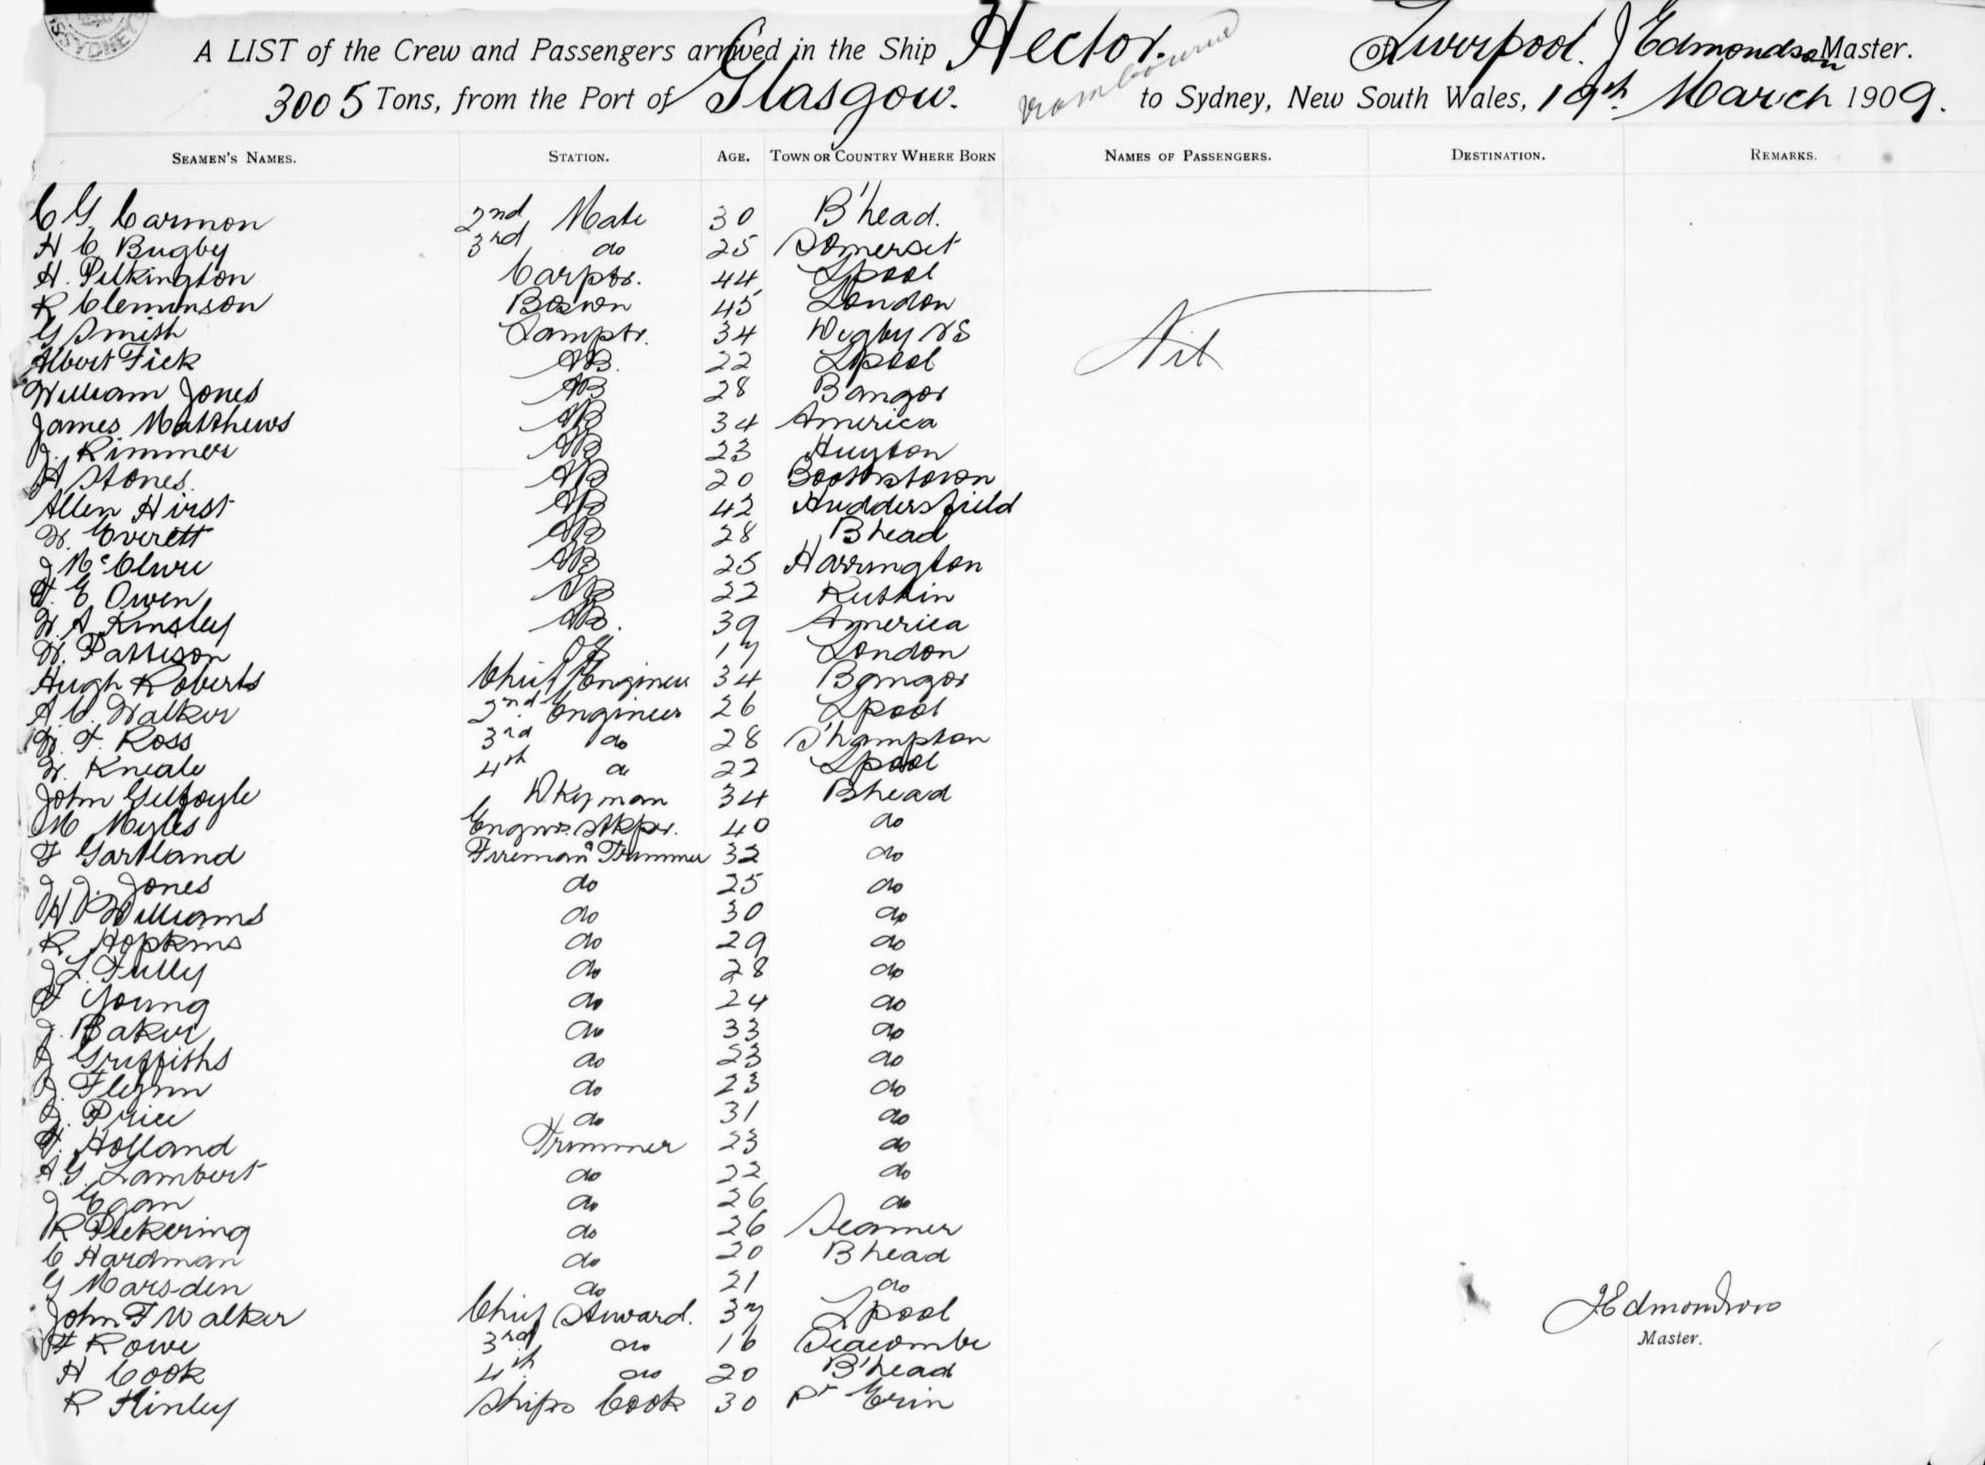 SYDNEY
A LIST of the Crew and Passengers arrived in the Ship Hector. of Liverpool. J Edmondson Master.
3005 Tons, from the Port of Glasgow. to Sydney, New South Wales, 19th March 1909.
SEAMEN'S NAMES. STATION. AGE. TOWN OR COUNTRY WHERE BORN NAMES OF PASSENGERS. DESTINATION. REMARKS.
C G. Carmon 2nd Mate 30 B'head.
H C Bugby 3rd do 25 Somerset
H. Pilkington Carptr. 44 Lpool
R Clemmson Boswn 45 London
G Smith Lamptr. 34 Digby NS
Nil
Albert Fick AB. 22 Lpool
William Jones AB 28 Bangor
James Matthews AB 34 America
J. Rimmer AB 23 Huyton
H Stones. AB 20 Boothstown
Allen Hirst AB 42 Huddersfield
W. Everett AB 28 Bhead
J McClure AB 25 Harrington
T. E Owen AB 22 Ruthin
W. A Kinsley AB. 39 America
W. Pattison OS 17 London
Hugh Roberts Chief Engineer 34 Bangor
A. C. Walker 2nd Engineer 26 Lpool
W. F. Ross 3rd do 28 S'hampton
W. Kneale 4th do 22 Lpool
John Gilfoyle Dkyman 34 Bhead
M Myles Engnrs. Stkpr. 40 do
F Gartland Fireman & Trimmer 32 do
J J. Jones do 25 do
H P Williams do 30 do
R Hopkins do 29 do
J L. Tully do 28 do
F Young do 24 do
J. Baker do 33 do
J Griffiths do 23 do
J. Flynn do 23 do
J. Price do 31 do
F. Holland Trimmer 23 do
A. G. Lambert do 22 do
J Egan do 26 do
R Pickering do 26 Seamer
C Hardman do 20 Bhead
G Marsden do 21 do
John F Walker Chief Steward. 37 Lpool
JEdmondson
Master.
F Rowe 3rd do 16 Seacombe
H Cook 4th do 20 B'head
R Hinley Ships Cook 30 Pt Erin